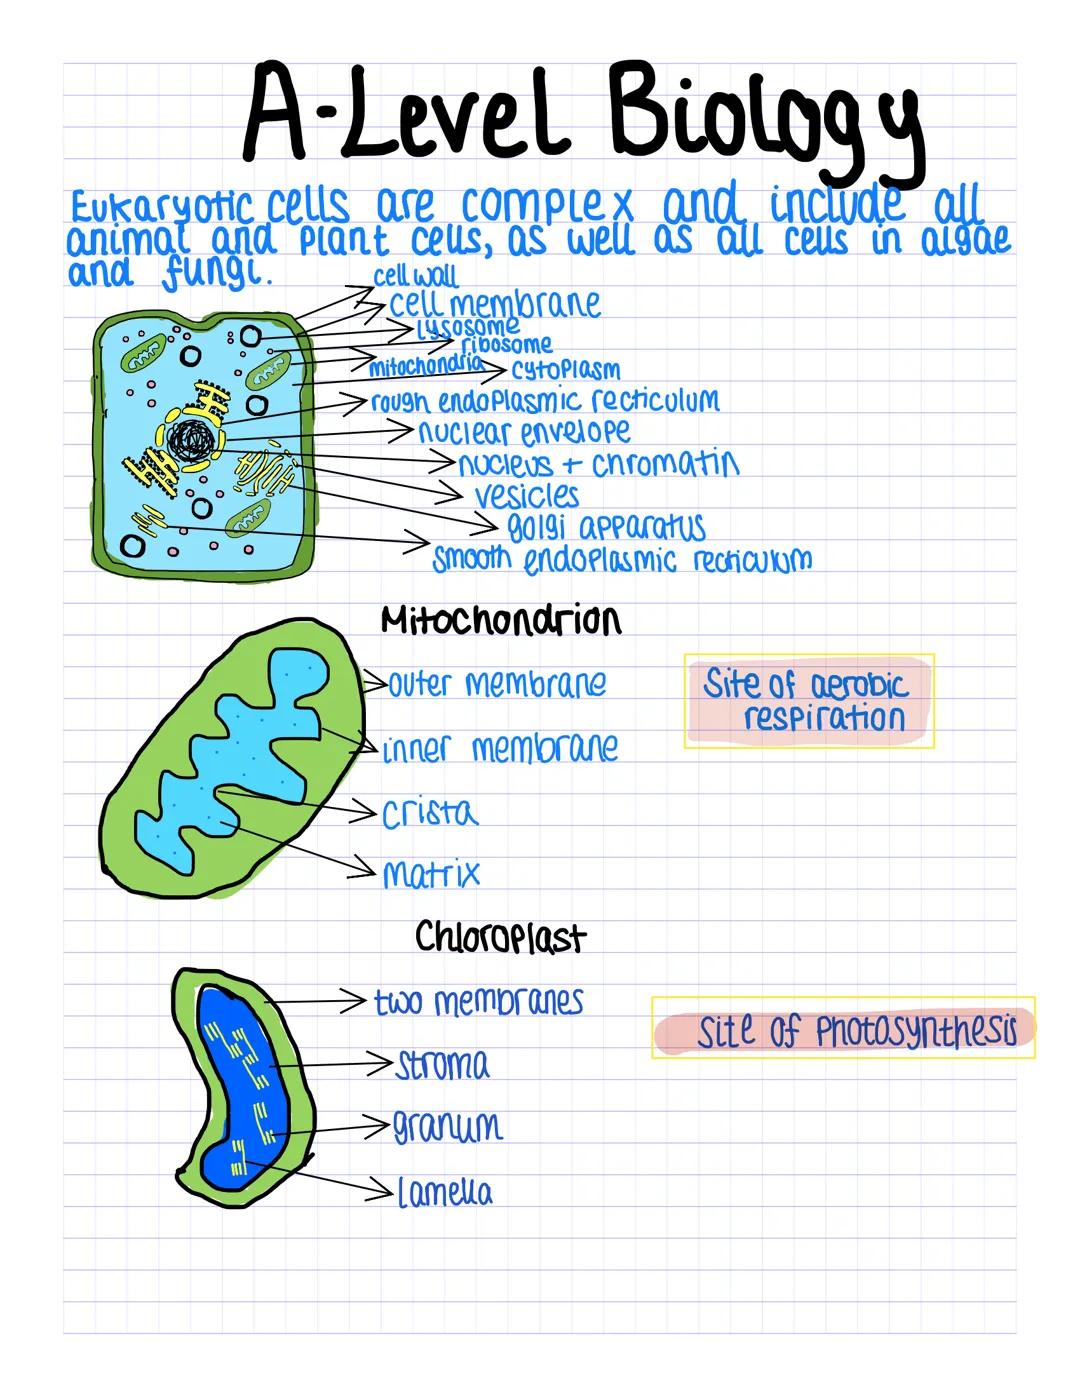 A-Level Biology
Eukaryotic cells are complex and include all
animal and plant cells, as well as all cells in algae
and fungi.
cell wall
cell membrane
lysosome
ribosome
mitochondria
cytoplasm
rough endoplasmic recticulum
nuclear envelope
nucleus + chromatin
vesicles
golgi apparatus
smooth endoplasmic recticulum
Mitochondrion
outer membrane
Site of aerobic
respiration
inner membrane
crista
matrix
Chloroplast
two membranes
site of photosynthesis
stroma
granum
lamella